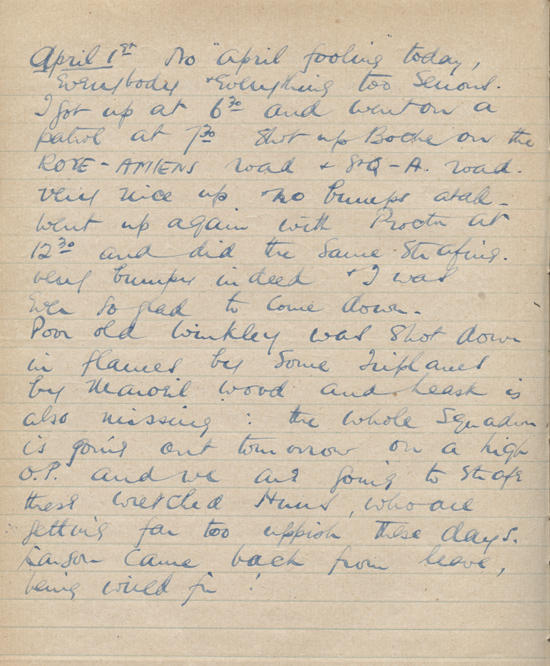 April 1st No "april fooling" today,
Everybody & Everything too Serious.
I got up at 6 30 and went on a
patrol at 7 30 Shot up Boche on the
ROYE-AMIENS road & StQ-A. road.
very nice up & no bumps atal-
went up again with Proctor at
12 30 and did the Same Strafing.
very bumpy indeed & I was
Ever So glad to come down.
Poor old Winkley was Shot down
in flames by Some Triplanes
by wood and Leask is
also missing: the whole Squadron
is going out tomorrow on a high
O.P. and we are going to Strafe
these wretched Huns, who are
getting far too uppish these days.
came back from leave,
being wired for!